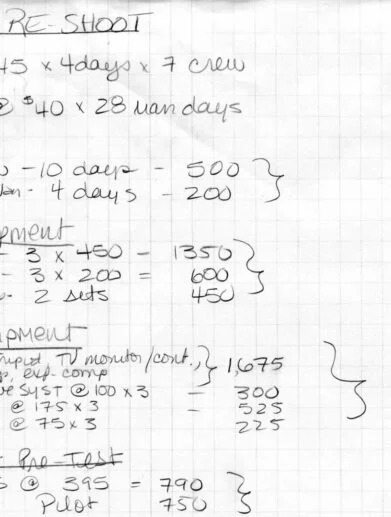 RE-SHOOT
45 x 4days x 7 crew
@ $40 x 28 man days
- 10 days - 500
- 4 days - 200
pment
- 3 x 450 - 1350
- 3 x 200 = 600
- 2 sets 450
pment
TV monitor/cont.,
exp. comp 1,675
SYST @ 100 x 3 = 300
@ 175 x 3 - 525
@ 75 x 3 225
Pre-Test
@ 395 = 790
Pilot 750